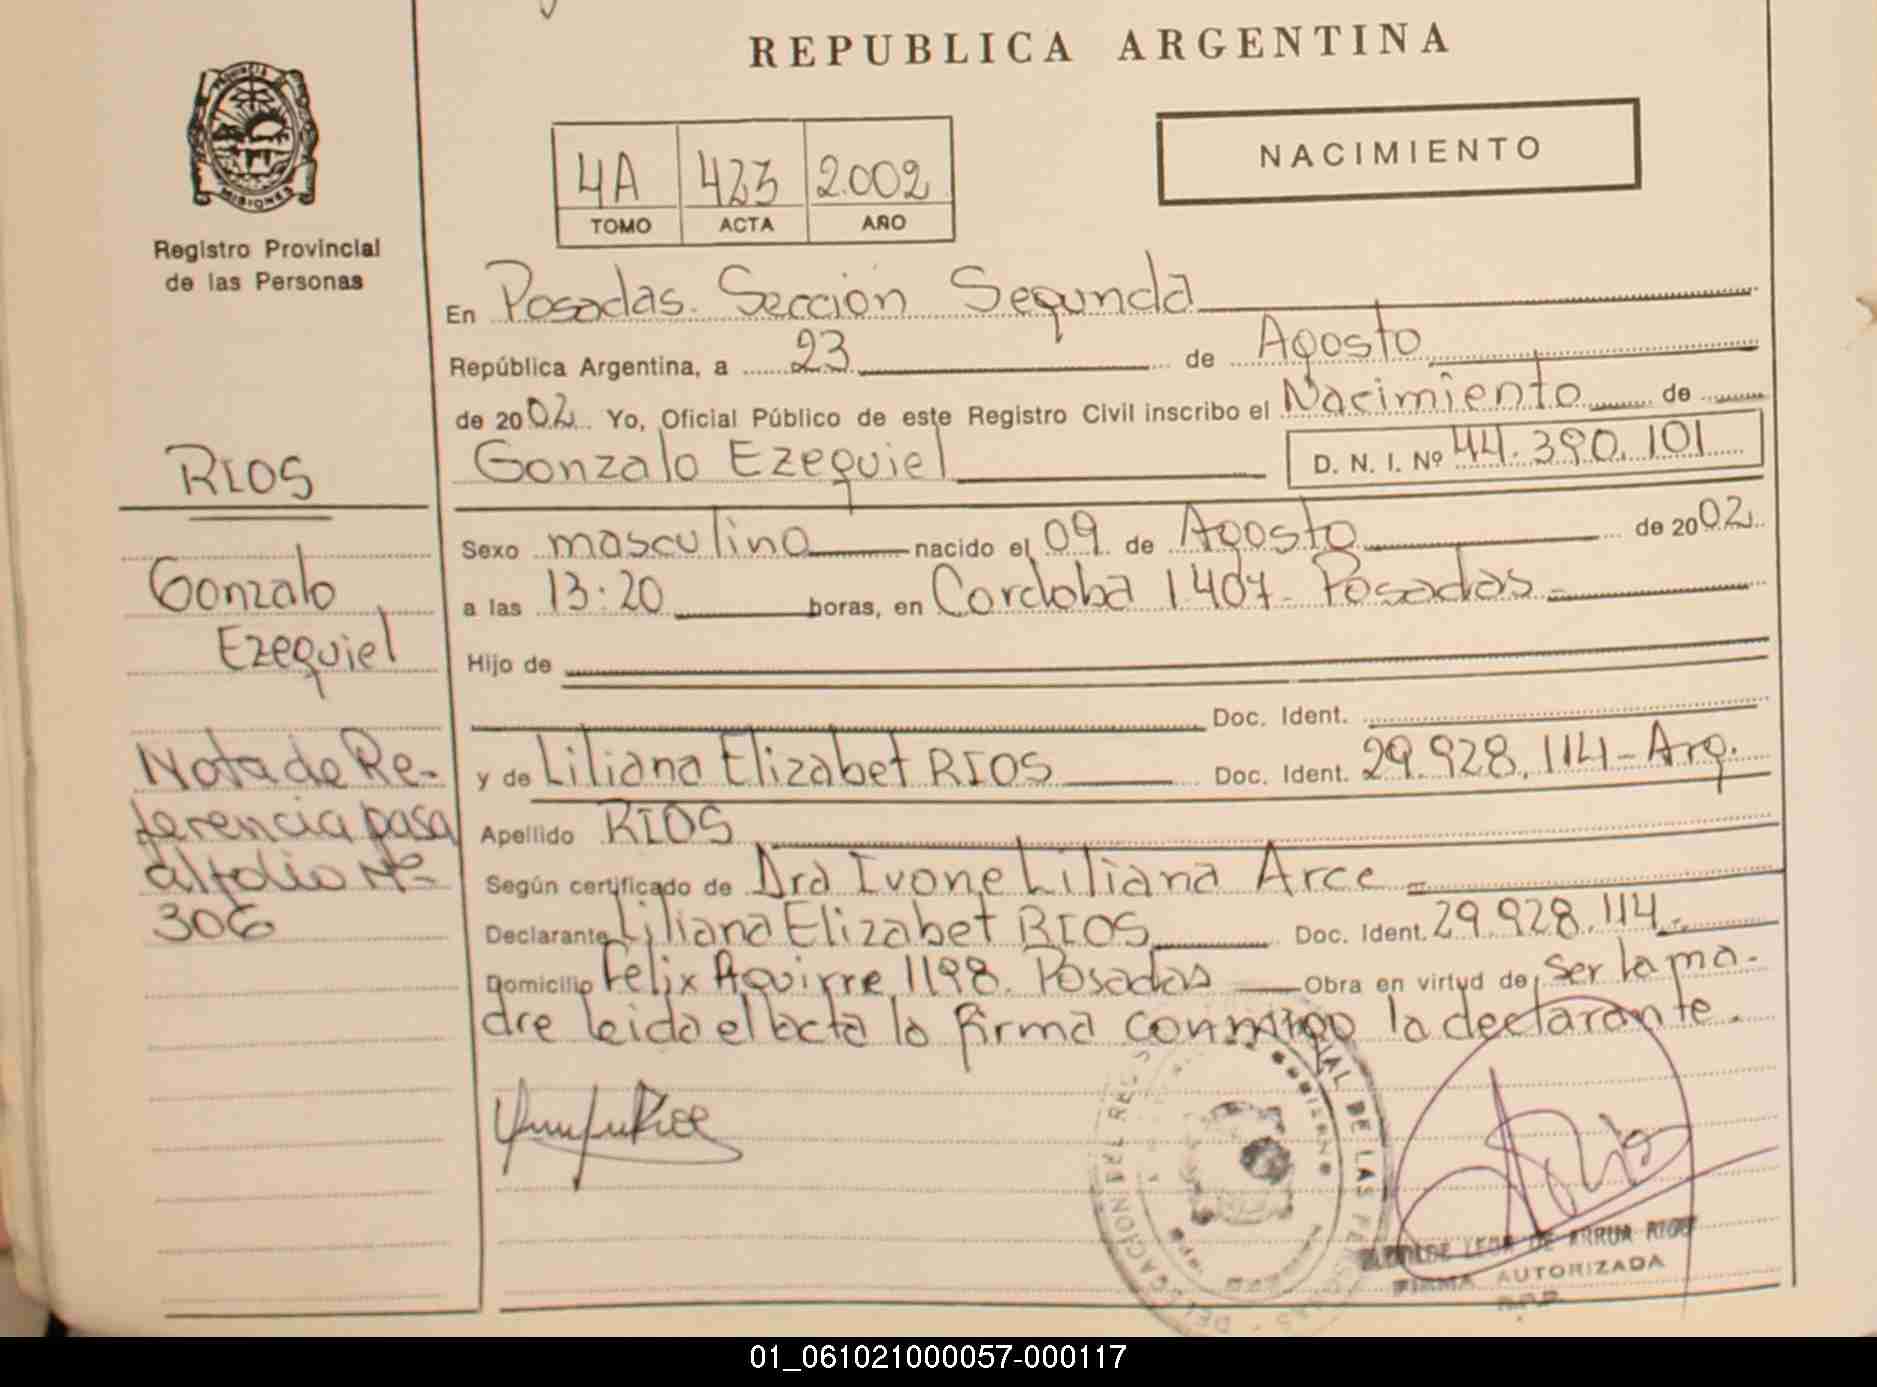 REPUBLICA ARGENTINA
PROVINCIA DE
MISIONES
Registro Provincial
de las Personas
NACIMIENTO
4A 423 2.002
TOMO ACTA AÑO
En Posadas. Sección Segunda
República Argentina, a 23 de Agosto
de 2002 Yo, Oficial Público de este Registro Civil inscribo el Nacimiento de
Gonzalo Ezequiel D. N. I. Nº 44.390.101
RIOS
Sexo masculino nacido el 09 de Agosto de 2002
Gonzalo
a las 13:20 horas, en Cordoba 1407- Posadas.=
Ezequiel
Hijo de
Doc. Ident.
Nota de Re-
y de Liliana Elizabet RIOS Doc. Ident. 29.928.114-Arg.
ferencia pasa
Apellido RIOS
al folio Nº
Según certificado de Dra Ivone Liliana Arce =
306
Declarante Liliana Elizabet RIOS Doc. Ident. 29.928.114.-
Domicilio Felix Aguirre 1198. Posadas Obra en virtud de ser la ma-
dre leida el acta la firma conmigo la declarante.
DELEGACION DEL REG
DE LAS PERSONAS
DE ARRUA
FIRMA AUTORIZADA
01_061021000057-000117